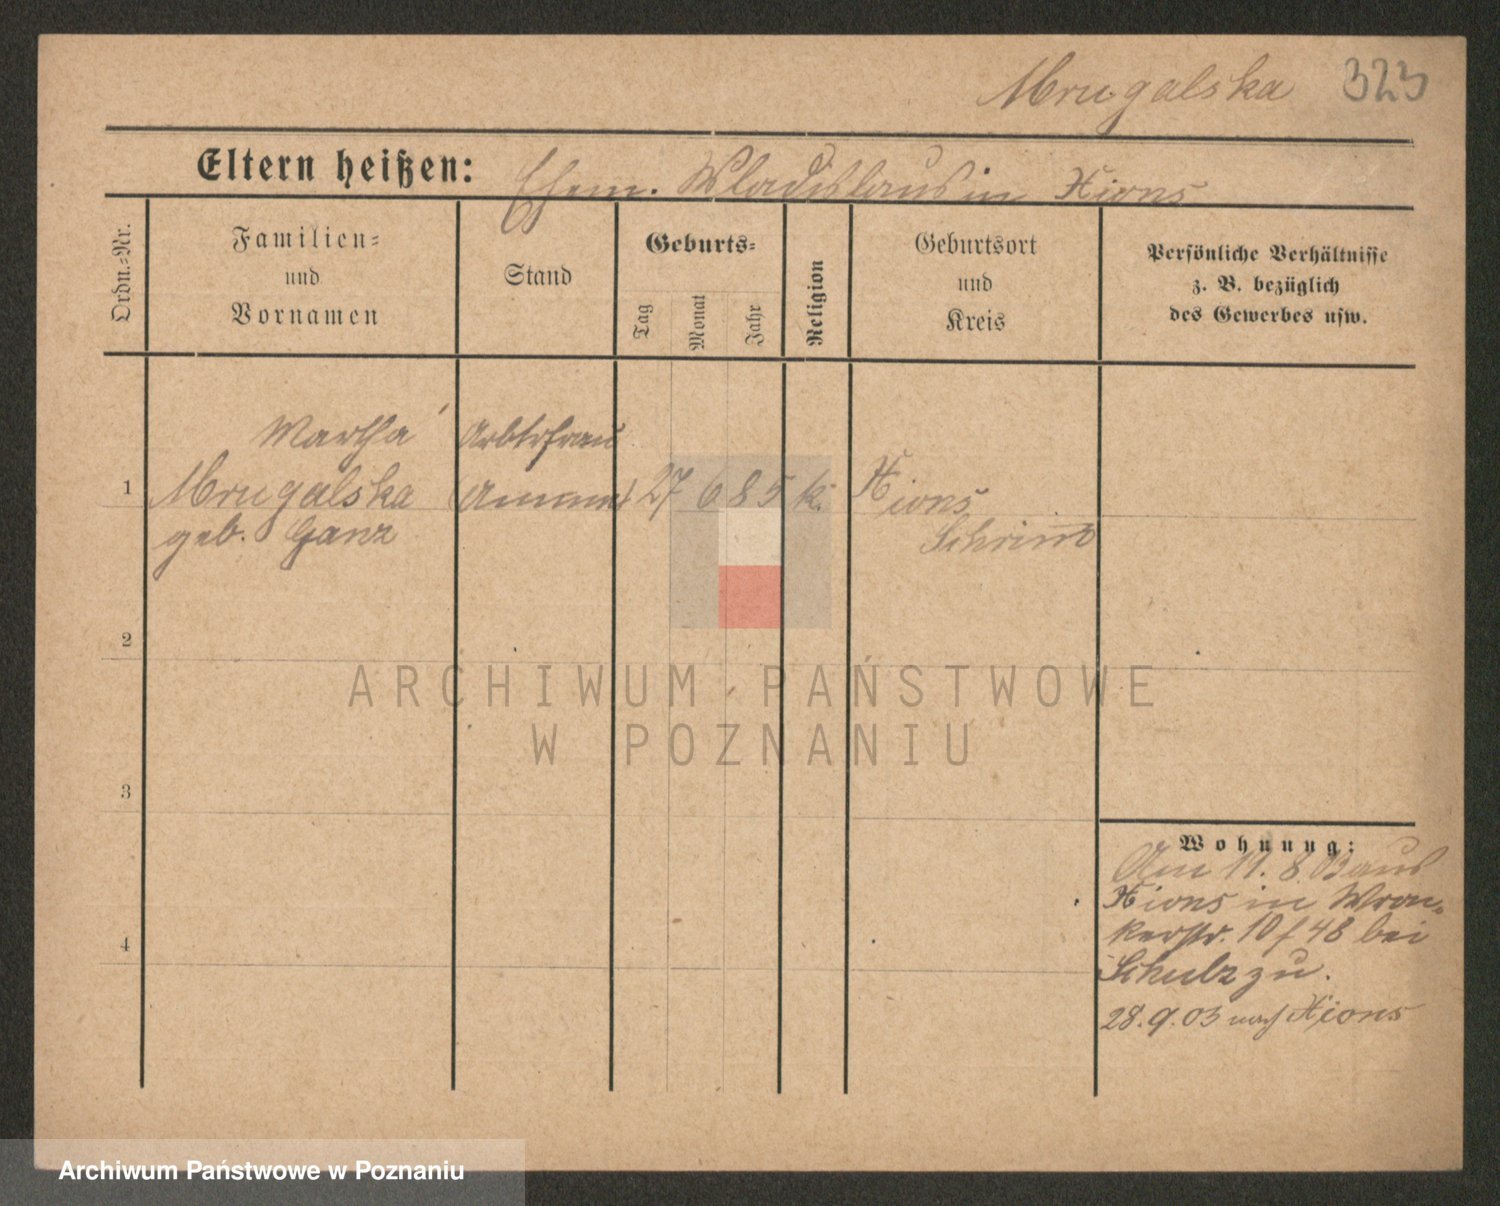 Mrugalska 323
Eltern heißen: Ehem. Wladislaus in Xions
Ordn.-Nr.
Familien-
und
Vornamen
Stand
Geburts-
Tag
Monat
Jahr
Religion
Geburtsort
und
Kreis
Persönliche Verhältnisse
z. B. bezüglich
des Gewerbes usw.
Martha Arbtrfrau
1 Mrugalska (Amme) 27 6 85 k. Xions
geb. Ganz Schrim
2
ARCHIWUM PAŃSTWOWE
W POZNANIU
3
Wohnung:
Am 11. 8. 03 aus
Xions in Wron-
kerstr. 10 / 48 bei
Schulz zu.
28. 9. 03 nach Xions
4
Archiwum Państwowe w Poznaniu